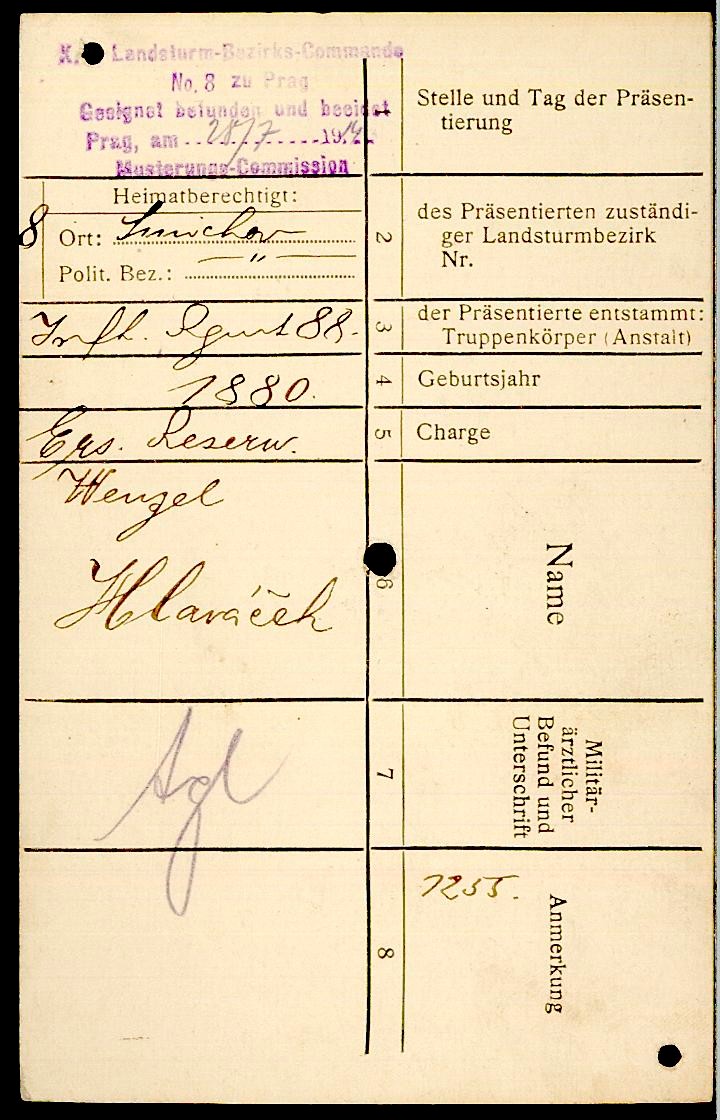 K. k. Landsturm-Bezirks-Commando
No. 8 zu Prag
Geeignet befunden und beeidet
Prag, am 28/7 1914
Musterungs-Commission
Stelle und Tag der Präsen-
tierung
Heimatberechtigt:
8
Ort: Smichov
Polit. Bez.: — " —
2
des Präsentierten zuständi-
ger Landsturmbezirk
Nr.
Inft. Rgmt 88.
3
der Präsentierte entstammt:
Truppenkörper (Anstalt)
1880.
4
Geburtsjahr
Ers. Reserv.
5
Charge
Wenzel
Hlaváček
6
Name
7
Militär-
ärztlicher
Befund und
Unterschrift
1255.
8
Anmerkung